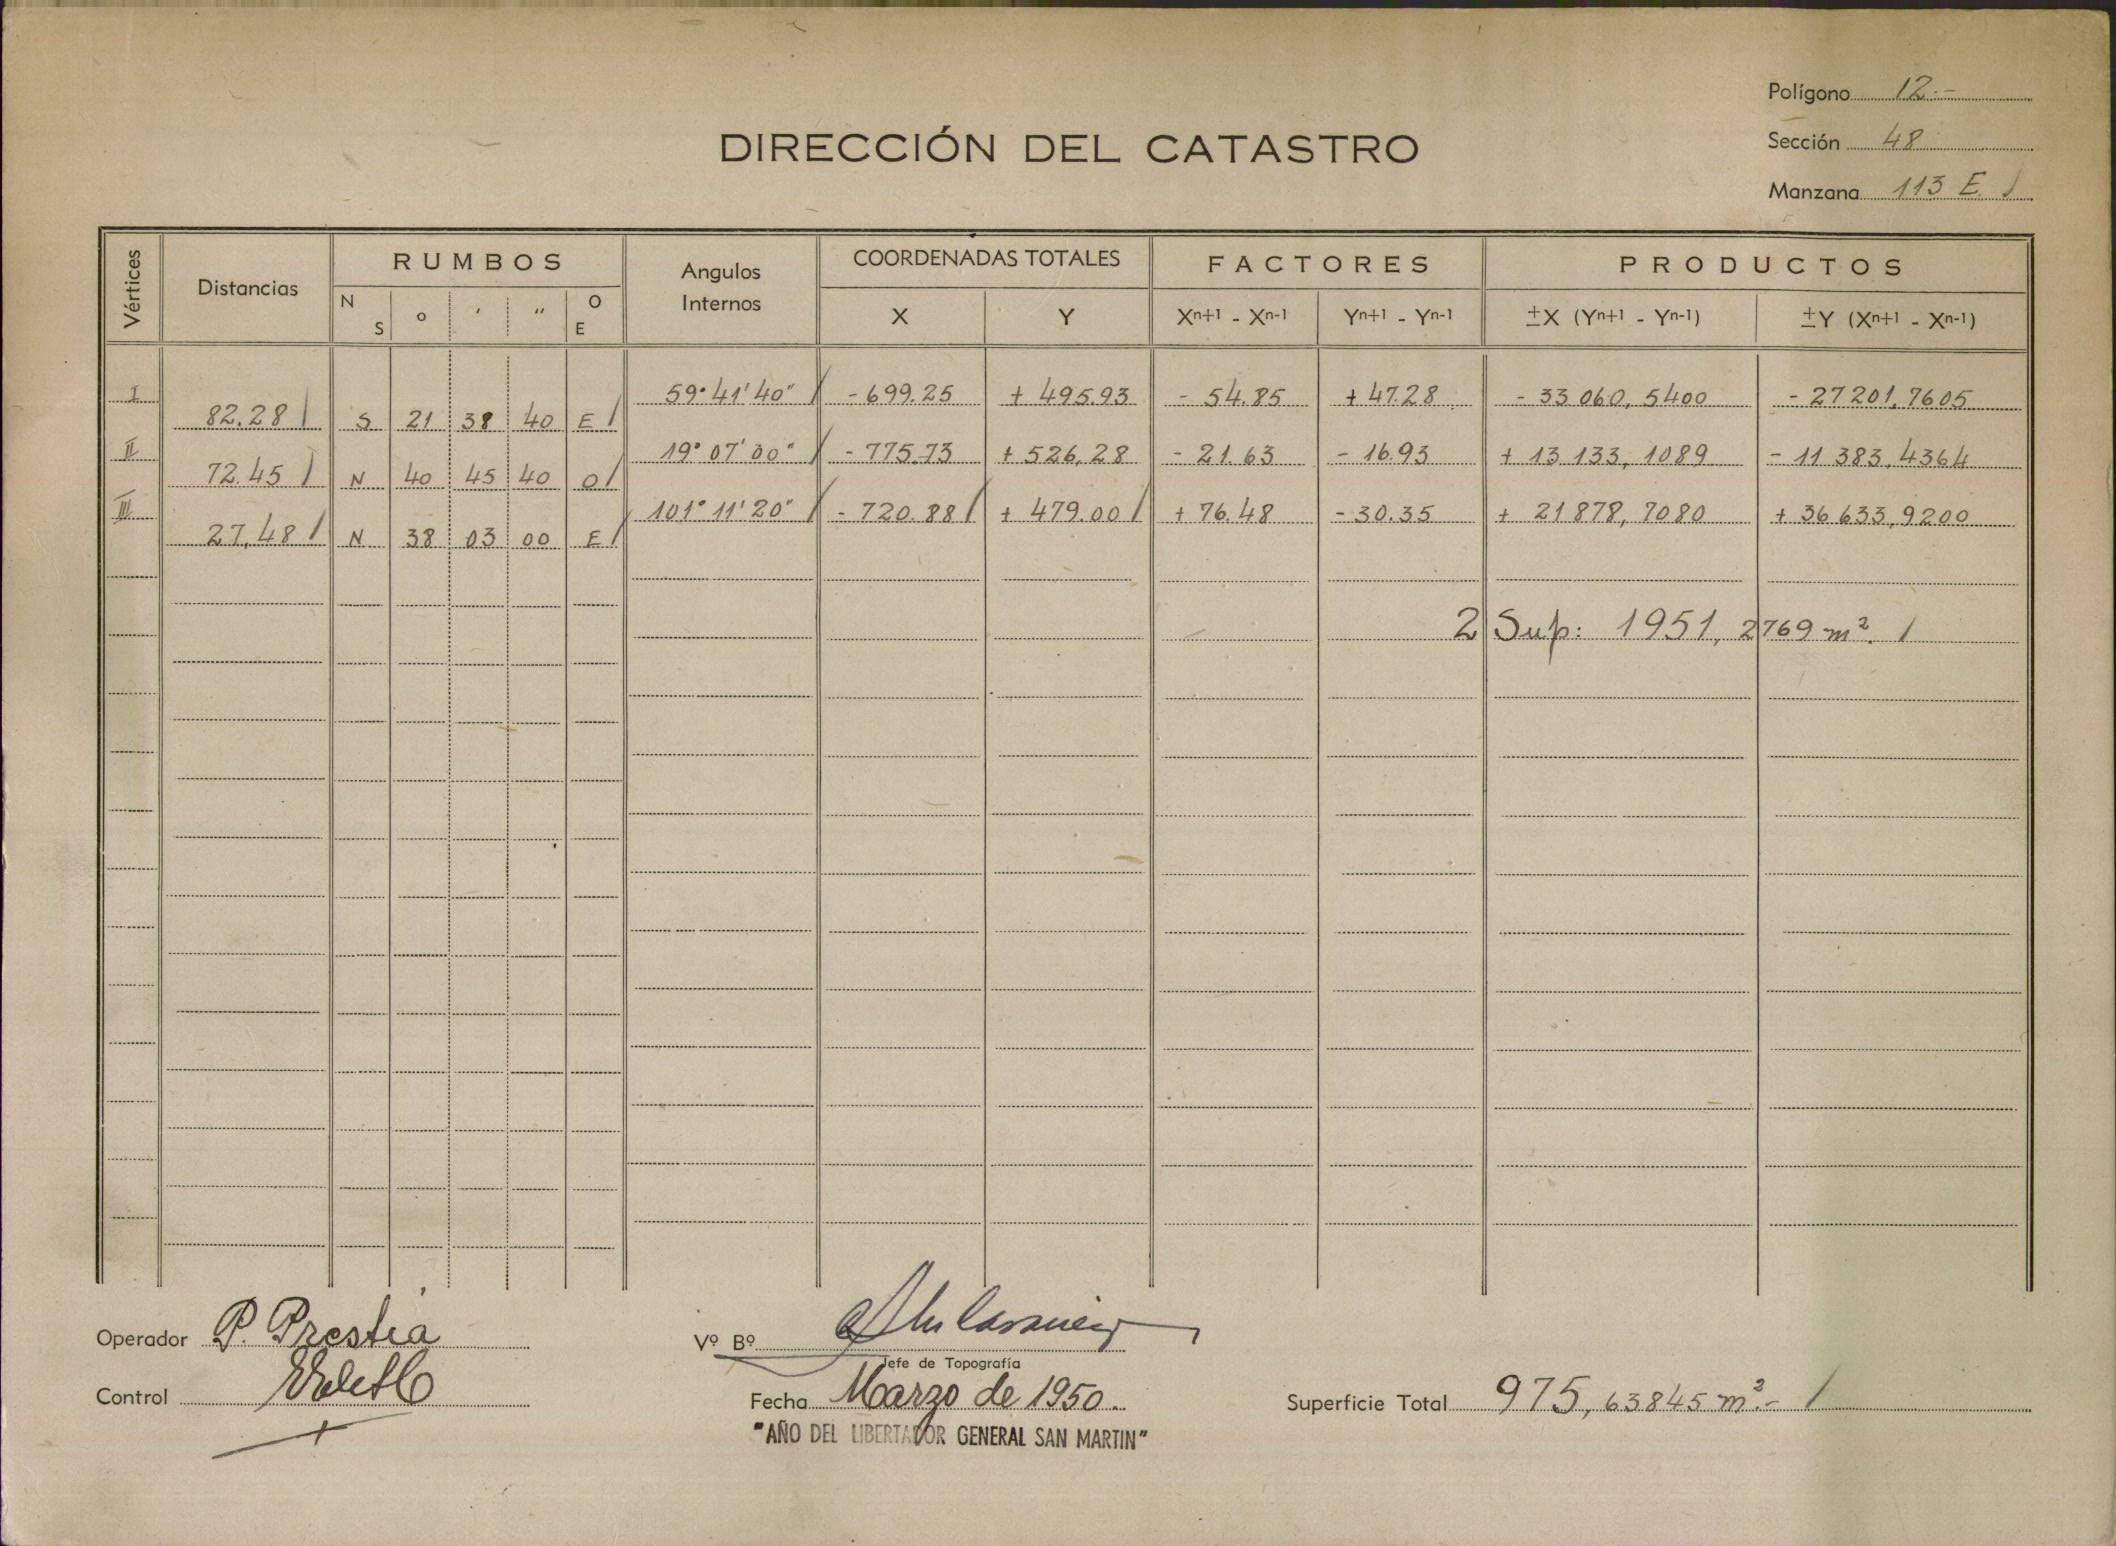 Polígono 12.-
DIRECCIÓN DEL CATASTRO
Sección 48
Manzana 113 E
Vértices Distancias RUMBOS Angulos Internos COORDENADAS TOTALES FACTORES PRODUCTOS
N S o ' " O E X Y Xn+1 - Xn-1 Yn+1 - Yn-1 ±X (Yn+1 - Yn-1) ±Y (Xn+1 - Xn-1)
I 59°41'40" - 699.25 + 495.93 - 54.85 + 47.28 - 33 060, 5400 - 27 201, 7605
82.28 S 21 38 40 E
II 19° 07' 00" - 775.73 + 526.28 - 21.63 - 16.93 + 13 133, 1089 - 11 383, 4364
72.45 N 40 45 40 O
III 101° 11' 20" - 720.88 + 479.00 + 76.48 - 30.35 + 21 878, 7080 + 36 633, 9200
27,48 N 38 03 00 E
2 Sup: 1951, 2769 m².
Operador P. Prestia
Vº Bº
Jefe de Topografía
Control
Fecha Marzo de 1950.
Superficie Total 975, 63845 m².-
"AÑO DEL LIBERTADOR GENERAL SAN MARTIN"